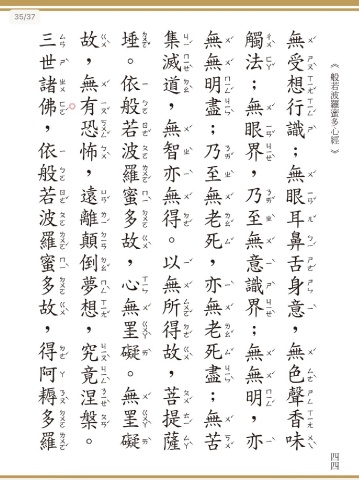 35/37
《般若波羅蜜多心經》
無受想行識；無眼耳鼻舌身意，無色聲香味
觸法；無眼界，乃至無意識界；無無明，亦
無無明盡；乃至無老死，亦無老死盡；無苦
集滅道，無智亦無得。以無所得故，菩提薩
埵。依般若波羅蜜多故，心無罣礙。無罣礙
故，無有恐怖，遠離顛倒夢想，究竟涅槃。
三世諸佛，依般若波羅蜜多故，得阿耨多羅
四四